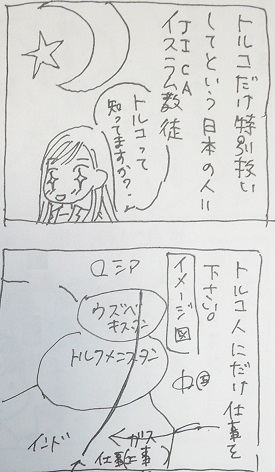 トルコだけ特別扱い
してという日本の人に
JICA
イスラム教徒
トルコって
知ってますか?
トルコ人にだけ仕事を
下さい。
イメージ図
ロシア
ウズベ
キスタン
トルクメニスタン
中国
インド
ガス
仕事(工事)